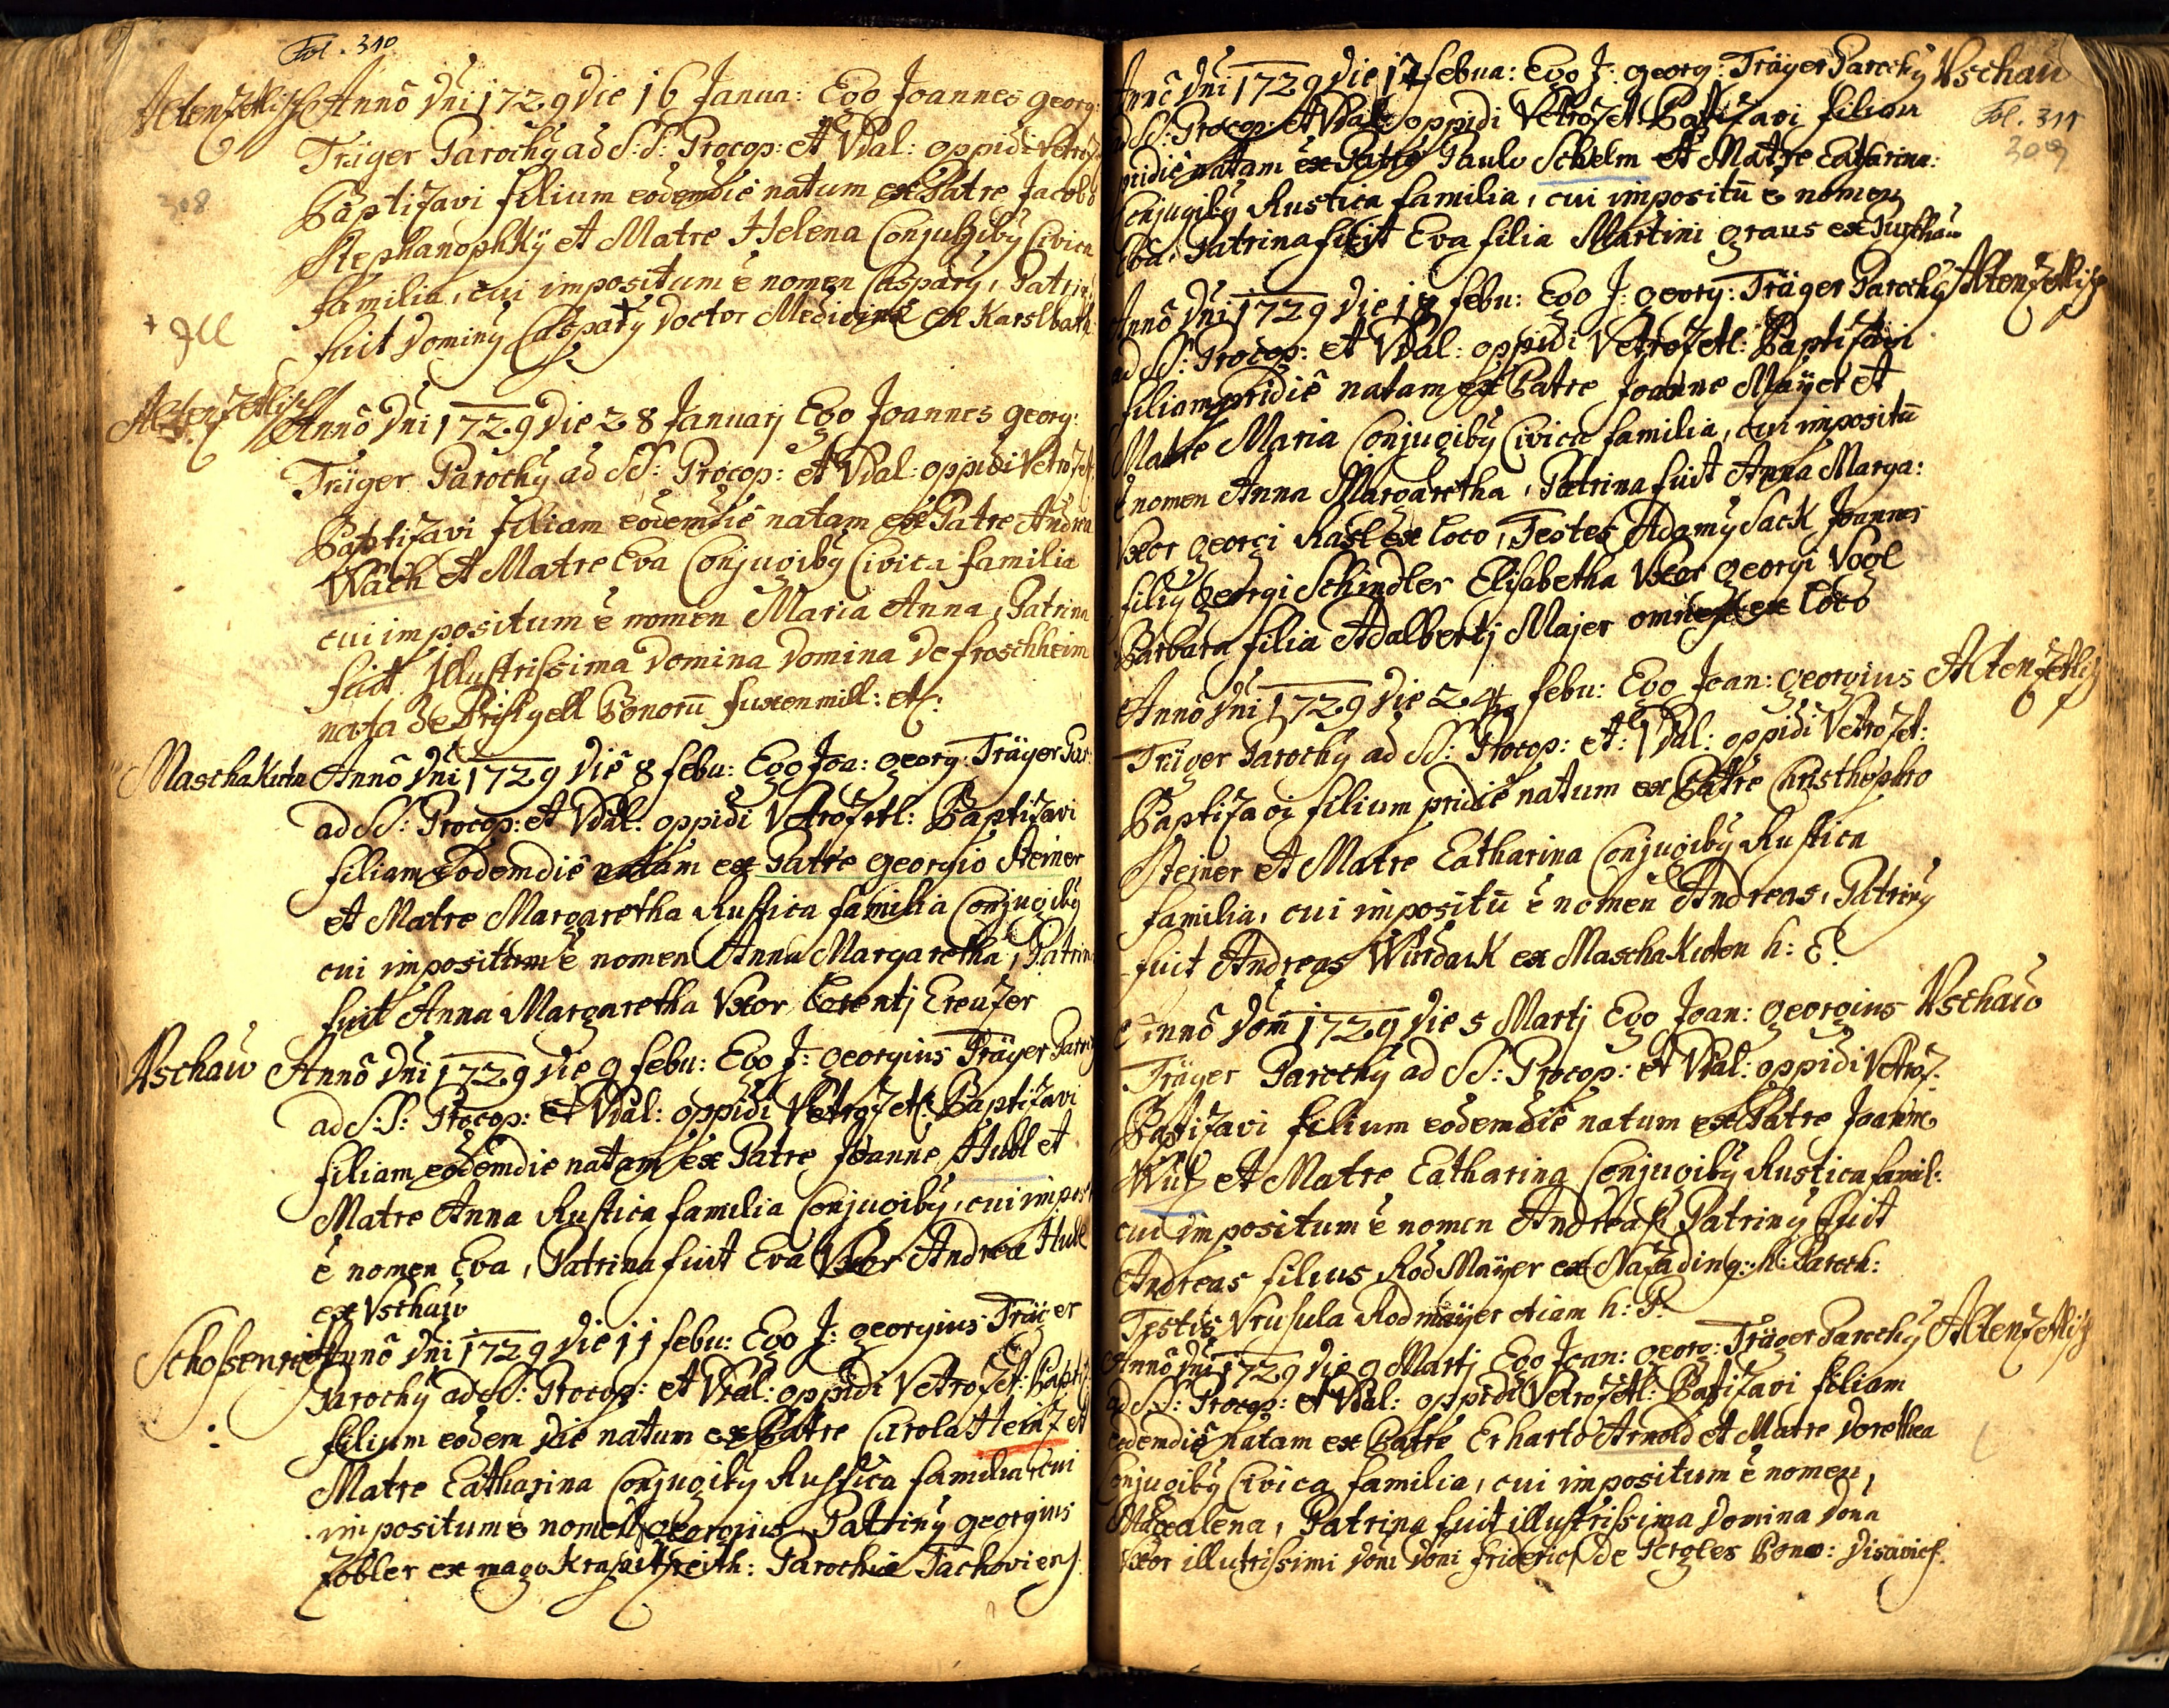 Fol. 310
Altenzetlisch Anno Dni 1729 Die 16 Janua: Ego Joannes georg:
Träger Parochy ad S:S: Procop: et Vdal: oppidi Vetroz
308
Baptizavi filium eodemdie natum ex Patre Jacobo
Stephanophkÿ et Matre Helena Conjugiby Civica
familia, cui impositum ē nomen Caspary, Patrin
fuit Dominy Caspary Doctor Medicina ex Karslbath
Altenzetlisch
Anno Dni 1729 Die 28 Januarj Ego Joannes georg:
Träger Parochy ad SS: Procop: et Vdal: oppidi Vetrozet
Baptizavi filiam eodemdie natam ex Patre Andrea
Wach et Matre Eva Conjugiby Civica familia
cui impositum ē nomen Maria Anna, Patrina
fuit Illustrissima Domina Domina De froschheim
nata De Bonorū
Maschakuten Anno Dni 1729 Die 8 febu: Ego Joa: georg: Träger Par
ad SS: Procop: et Vdal: oppidi Vetrozetl: Baptizavi
filiam eodemdie natam ex Patre georgio Steiner
et Matre Margaretha Rustica familia Conjugiby
cui impositum ē nomen Anna Margaretha, Patrin
fuit Anna Margaretha Vxor Lorentj Creuzer
Vschau Anno Dni 1729 Die 9 febu: Ego J: georgius Träger Paro
ad S:S: Procop: et Vdal: oppidi Vetrozetl: Baptizavi
filiam eodemdie natam ex Patre Joanne Hubl et
Matre Anna Rustica familia Conjugiby, cui impos
ē nomen Eva, Patrina fuit Eva Vxor Andrea Hubl
ex Vschau
Schossenreit Anno Dni 1729 Die 11 febu: Ego J: georgius Träger
Parochy ad SS: Procop: et Vdal: oppidi Vetrozet: Bapti
filium eodem die natum ex Patre Carolo Heinz et
Matre Catharina Conjugiby Rustica familia cui
impositum ē nomen georgius, Patriny georgius
Zobler ex Parochiæ Tachoviens:
Anno Dni 1729 Die 12 febua: Ego J: georg: Träger Parochy Vschau
ad SS: Procop: et Vdal: oppidi Vetrozet: Batizavi filiam
Fol. 311
309
pridie natam ex Patre Paulo Schelm et Matre Catharina:
Conjugiby Rustica familia, cui impositū ē nomen
Eva, Patrina fuit Eva filia Martini graus ex
Anno Dni 1729 Die 18 febu: Ego J: georg: Träger Parochy Altenzetlisch
ad SS: Procop: et Vdal: oppidi Vetrozetl: Baptizavi
filiam pridie natam ex Patre Joanne Mayer et
Matre Maria Conjugiby Civica familia, cui impositū
ē nomen Anna Margaretha, Patrina fuit Anna Marga:
Vxor georgi Rasl ex loco, Testes Adamy Sack Joannes
filiy georgi Schindler Elisabetha Vxor georgi Vogl
Barbara filia Adalbertj Majer omnes ex loco
Anno Dni 1729 Die 24 febu: Ego Joan: georgius Altenzetlisch
Träger Parochy ad SS: Procop: et: Vdal: oppidi Vetrozet:
Baptizavi filium pridie natum ex Patre Christhophro
Steiner et Matre Catharina Conjugiby Rustica
familia, cui impositū ē nomen Andreas, Patriny
fuit Andreas Wurdack ex Maschakuten h: P
Anno Dom 1729 Die 5 Martj Ego Joan: georgius Vschau
Träger Parochy ad SS: Procop: et Vdal: oppidi Vetroz:
Baptizavi filium eodemdie natum ex Patre Joanne
et Matre Catharina Conjugiby Rustica famil:
cui impositum ē nomen Andreas Patriny fuit
Andreas filius Rod Mayer ex h: Paroch:
Testis Vrusula Rodmayer etiam h: P.
Anno Dni 1729 Die 9 Martj Ego Joan: georg: Träger Parochy Altenzetlisch
ad SS: Procop: et Vdal: oppidi Vetrozetl: Batizavi filiam
eodemdie natam ex Patre Erharto Arnold et Matre Dorothea
Conjugiby Civica familia, cui impositum ē nomen
Magdalena, Patrina fuit illustrissima Domina Dōna
Vxor illutrissimi Doni Doni friderici De Pergles Bono: